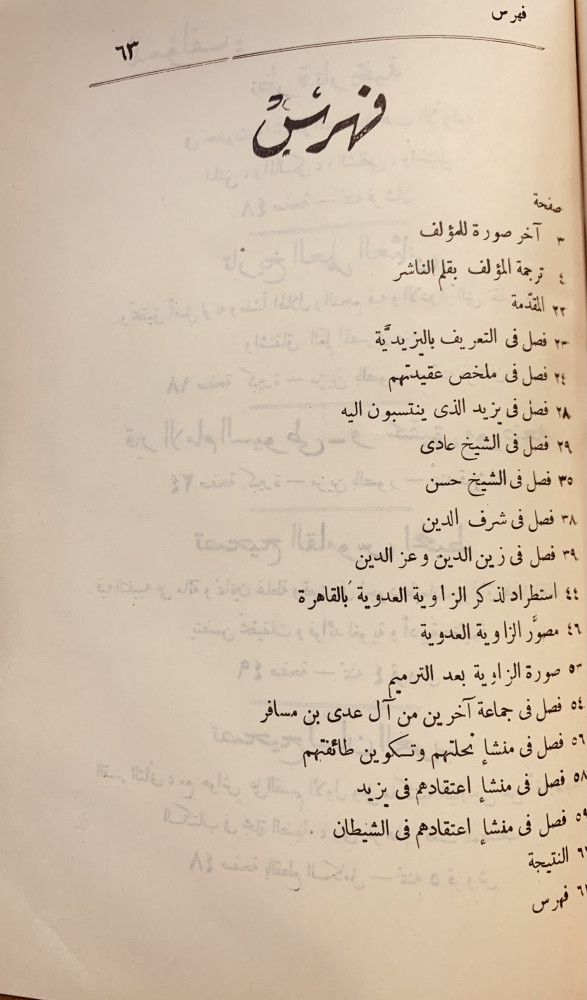 فهرس
٦٣
فهرس
صفحة
٣ آخر صورة للمؤلف
٤ ترجمة المؤلف بقلم الناشر
٢٢ المقدّمة
٢٣ فصل فى التعريف باليزيديَّة
٢٤ فصل فى ملخص عقيدتهم
٢٨ فصل فى يزيد الذى ينتسبون اليه
٢٩ فصل فى الشيخ عادى
٣٥ فصل فى الشيخ حسن
٣٨ فصل فى شرف الدين
٣٩ فصل فى زين الدين وعز الدين
٤٤ استطراد لذكر الزاوية العدوية بالقاهرة
٤٦ مصوَّر الزاوية العدوية
٥٣ صورة الزاوية بعد الترميم
٥٤ فصل فى جماعة آخرين من آل عدى بن مسافر
٥٦ فصل فى منشإ نحلتهم وتسكوين طائفتهم
٥٨ فصل فى منشإ اعتقادهم فى يزيد
٥٩ فصل فى منشإ اعتقادهم فى الشيطان
النتيجة
فهرس